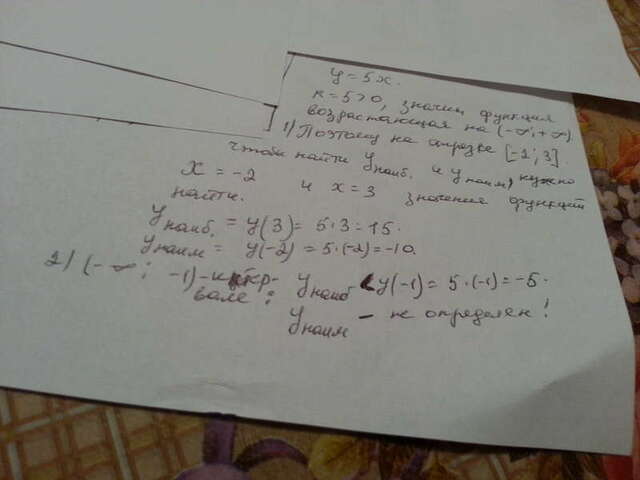 y = 5x.
k = 5 > 0, значит функция
возрастающая на (-∞; +∞).
1) Поэтому на отрезке [-2; 3].
чтобы найти y наиб. и y наим, нужно
найти. значения функции
x = -2 и x = 3
y наиб. = y(3) = 5·3 = 15.
y наим = y(-2) = 5·(-2) = -10.
2) (-∞; -1) - интер-
вале: y наиб < y(-1) = 5·(-1) = -5.
y наим - не определен!